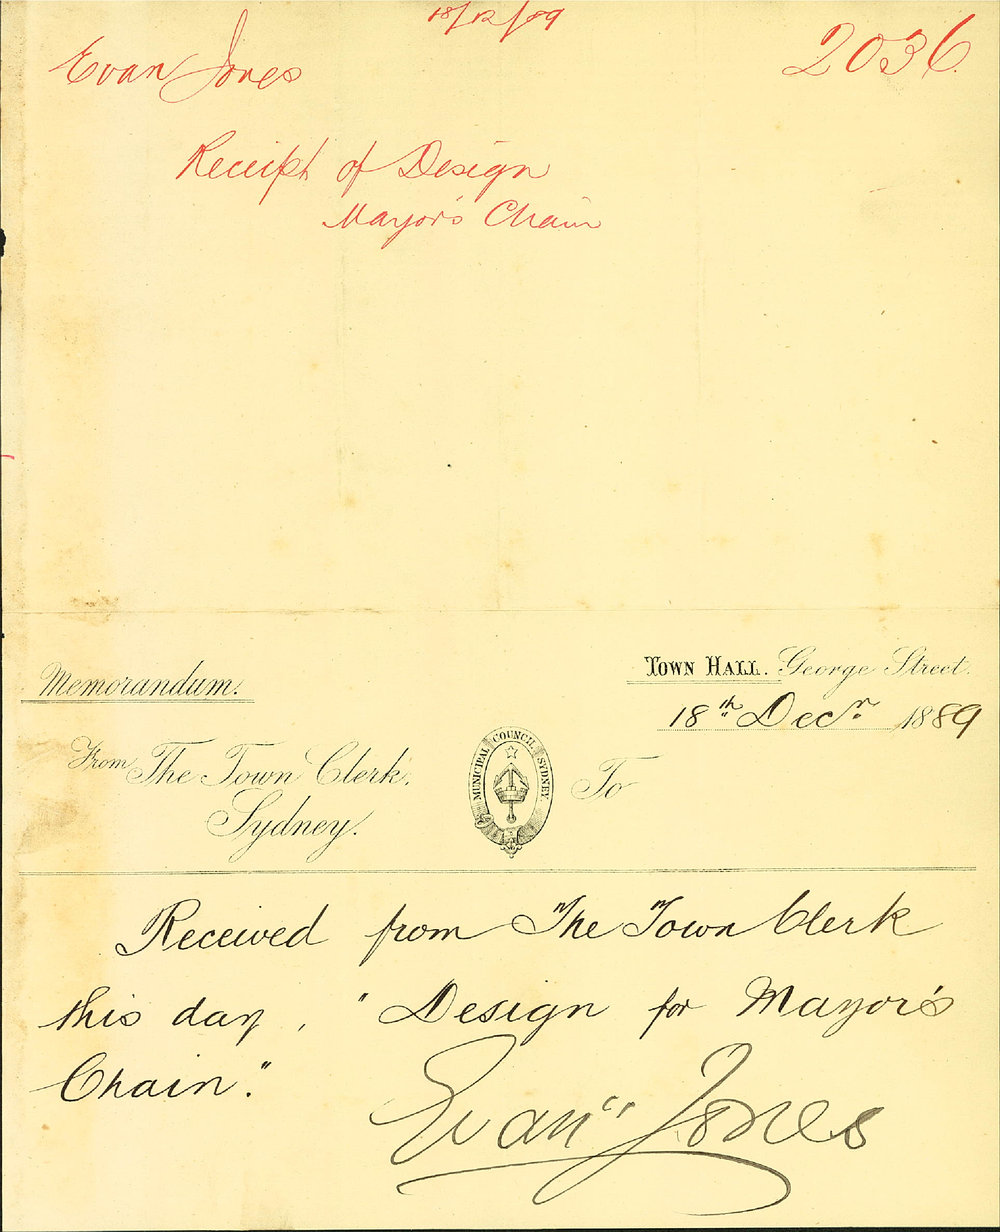 18/12/89
Evan Jones
2036
Receipt of Design
Mayor's Chain
Memorandum.
TOWN HALL. George Street.
18th Decr. 1889
From The Town Clerk,
Sydney.
MUNICIPAL COUNCIL SYDNEY.
To
Received from The Town Clerk
this day, "Design for Mayor's
Chain."
Evan Jones